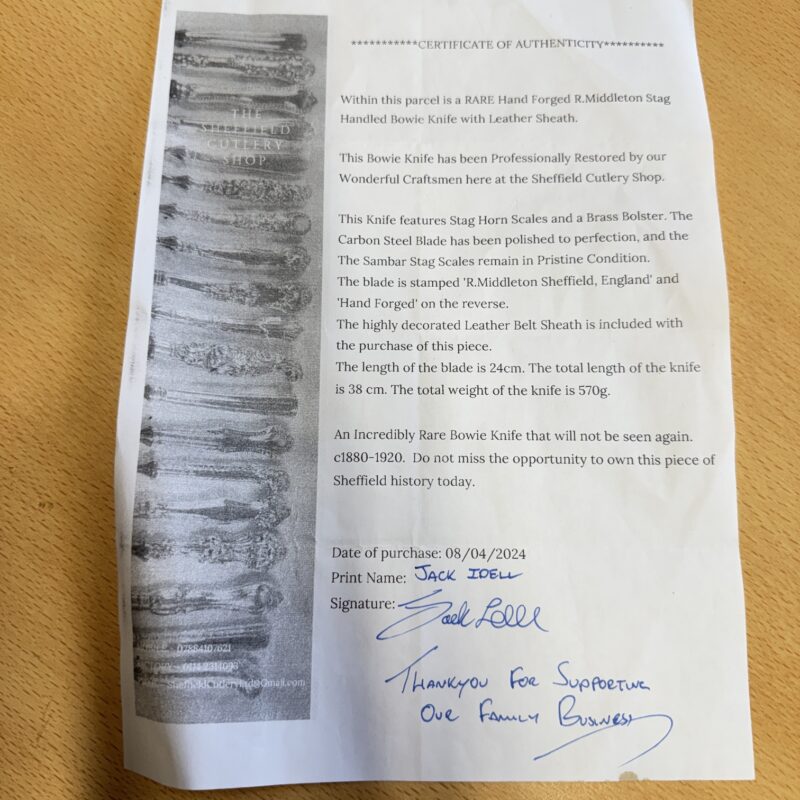 ***********CERTIFICATE OF AUTHENTICITY**********
THE
SHEFFIELD
CUTLERY
SHOP
Within this parcel is a RARE Hand Forged R.Middleton Stag
Handled Bowie Knife with Leather Sheath.
This Bowie Knife has been Professionally Restored by our
Wonderful Craftsmen here at the Sheffield Cutlery Shop.
This Knife features Stag Horn Scales and a Brass Bolster. The
Carbon Steel Blade has been polished to perfection, and the
The Sambar Stag Scales remain in Pristine Condition.
The blade is stamped 'R.Middleton Sheffield, England' and
'Hand Forged' on the reverse.
The highly decorated Leather Belt Sheath is included with
the purchase of this piece.
The length of the blade is 24cm. The total length of the knife
is 38 cm. The total weight of the knife is 570g.
An Incredibly Rare Bowie Knife that will not be seen again.
c1880-1920. Do not miss the opportunity to own this piece of
Sheffield history today.
Date of purchase: 08/04/2024
Print Name: JACK IDELL
Signature:
THANKYOU FOR SUPPORTING
OUR FAMILY BUSINESS
07884107621